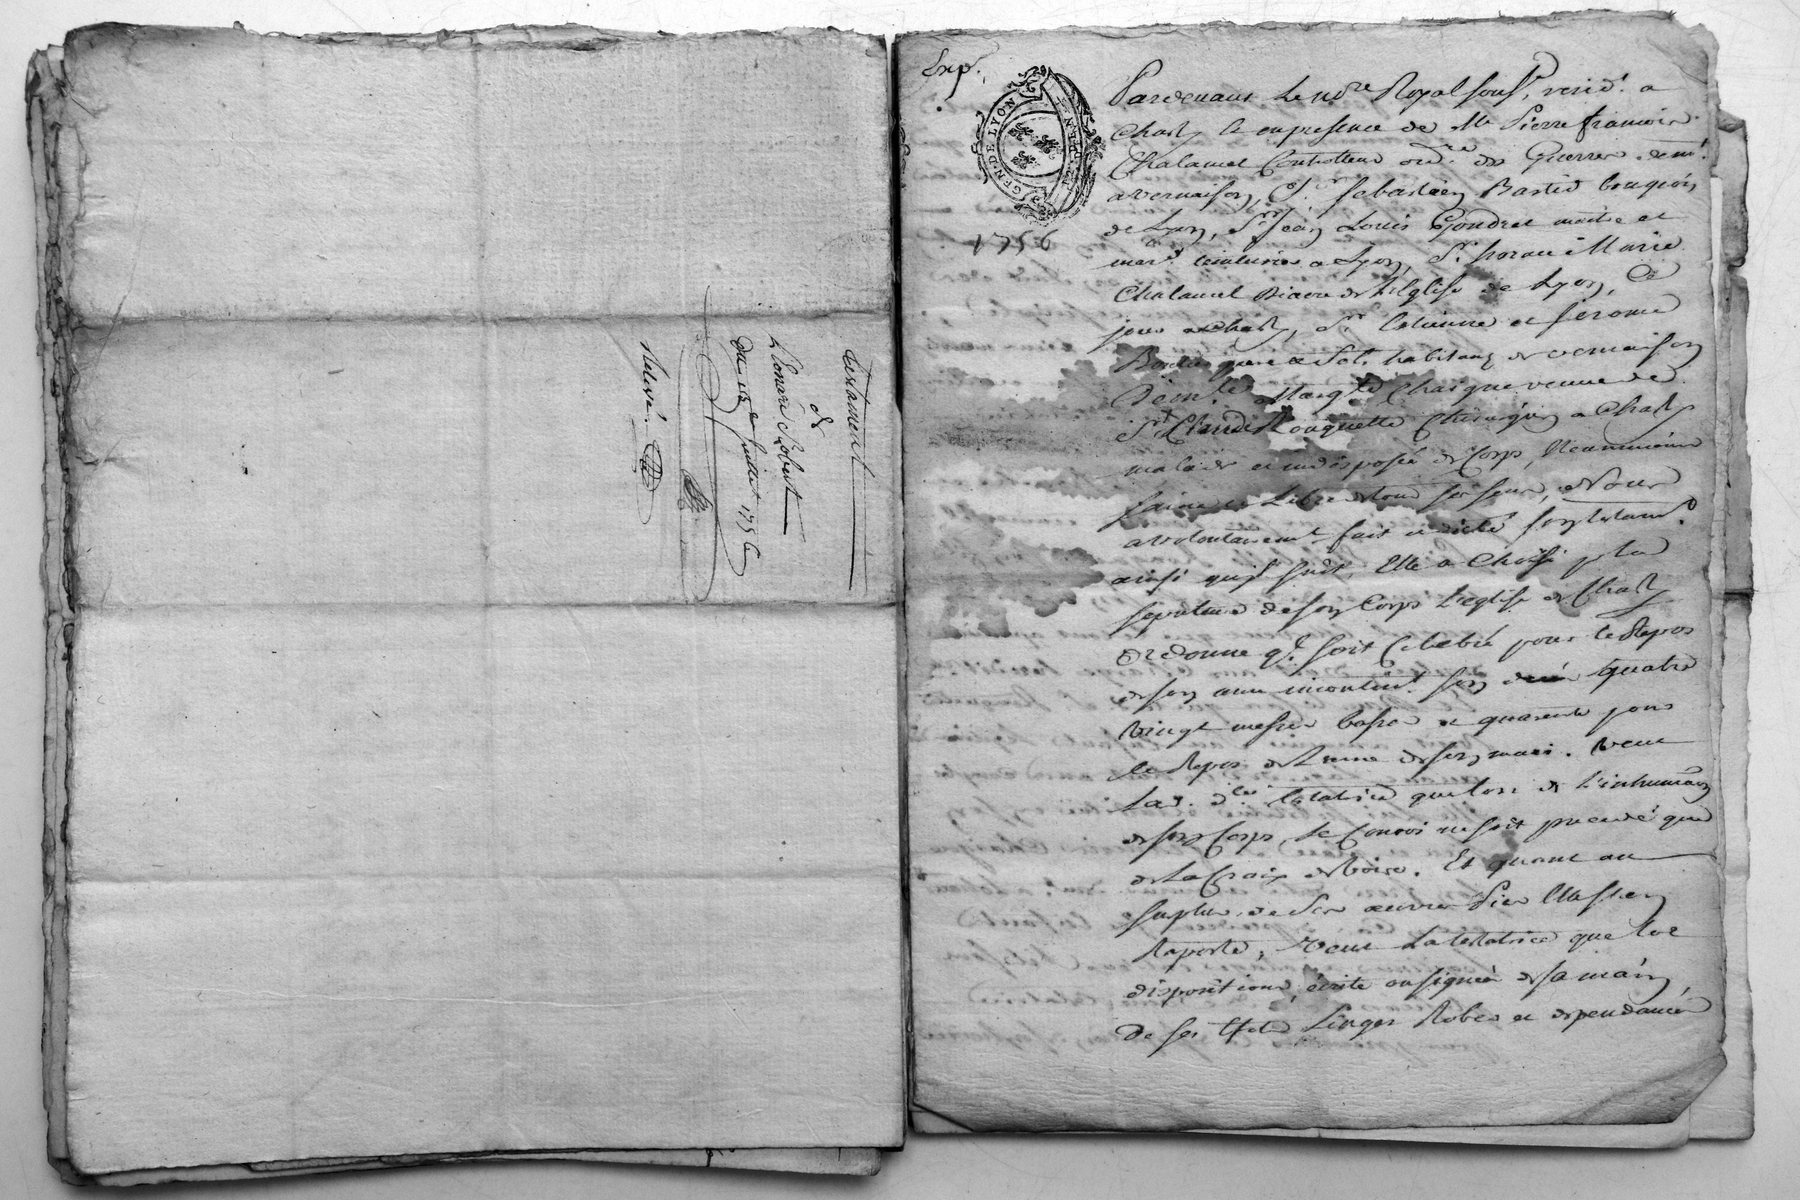 testament
de
Leonard Robert
du 13e Juillet 1756
Relevé.
Exp.
GEN. DE LYON
1756
Pardevant Le no.re Royal sousé, resid.t a
Charly & en presence de Mr. Pierre francois
Chalamel Controlleur ord.re des Guerres dem.t
a vernaison, Sr. Sebastien Bastid bourgeois
de Lyon, Sr. Jean Louis Gondret maitre et
mar.d teinturier a Lyon, Sr. horace Marie
Chalamel Diacre de L'Eglise de Lyon, de
jour a Charly, Srs. Estienne et Jerome
pere & fils habitans de vernaison
Dem.lle Marg.te Chaigne veuve de
Sr. Claude Rouquette Chirurgien a Charly
malade et indisposée de Corps, Neanmoins
saine et Libre de tous ses sens,
a volontairement fait et dicté son testam.t
ainsi qu'il suit, Elle a Choisi p.r la
sepulture de son Corps L'eglise de Charly
ordonne q.l soit Celebré pour le Repos
de son ame incontin.t son decés quatre
vingt messes basses et quarente pour
le Repos de L'ame de son mari. veut
Lad. d.lle testatrice que lors de L'inhumaon
de son Corps, Le Convoi ne soit precedé que
de La Croix de bois. Et quant au
surplus de ses œuvres Pies Elle s'en
Raporte, veut La testatrice que les
dispositions, écrite ou signée de sa main
De ses Linges Robes et dependances